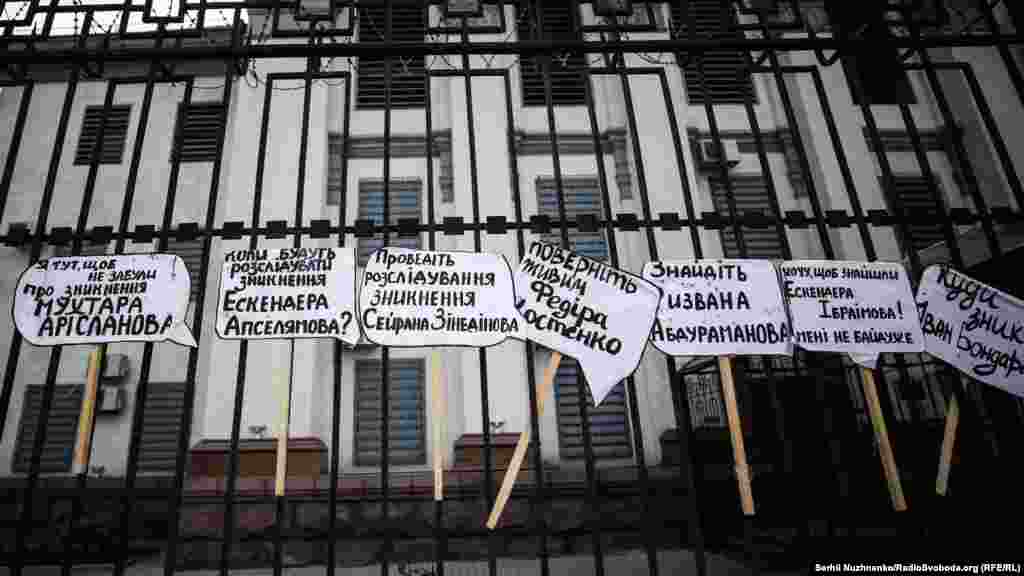 Я ТУТ, ЩОБ
НЕ ЗАБУЛИ
ПРО ЗНИКНЕННЯ
МУХТАРА
АРІСЛАНОВА
КОЛИ БУДУТЬ
РОЗСЛІДУВАТИ
ЗНИКНЕННЯ
ЕСКЕНДЕРА
АПСЕЛЯМОВА?
ПРОВЕДІТЬ
РОЗСЛІДУВАННЯ
ЗНИКНЕННЯ
СЕЙРАНА ЗІНЕДІНОВА
ПОВЕРНІТЬ
ЖИВИМ
ФЕДІРА
КОСТЕНКО
ЗНАЙДІТЬ
ІЗВАНА
АБДУРАМАНОВА
ХОЧУ, ЩОБ ЗНАЙШЛИ
ЕСКЕНДЕРА
ІБРАЇМОВА!
МЕНІ НЕ БАЙДУЖЕ
КУДИ
ЗНИК
ІВАН БОНДАР
Serhii Nuzhnenko/RadioSvoboda.org (RFE/RL)